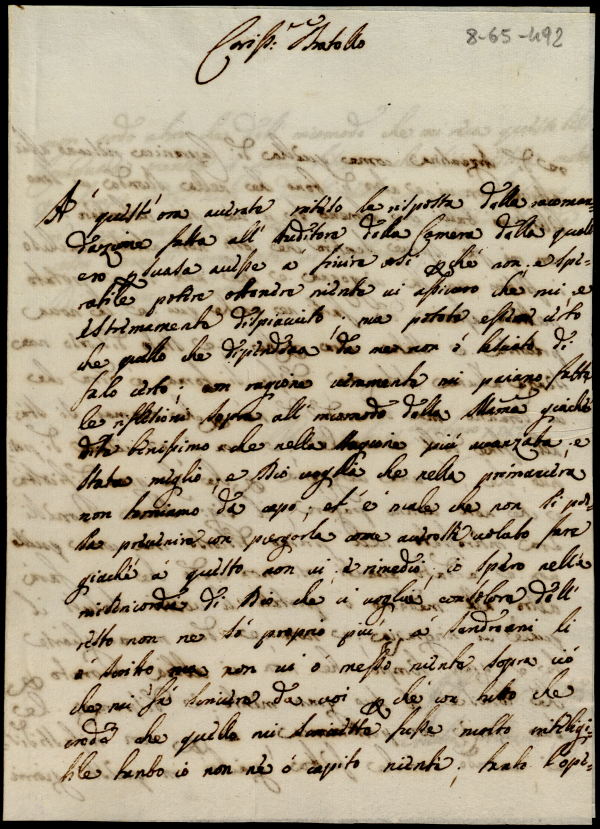 8-65-492
Cariss.º Fratello
A quest'ora averete inteso la risposta della racoman
dazione fatta all'Auditore della Camera dalla quall
ero p[er]suasa avesse a finire così p[er]ché non è spe-
rabile potere ottenere niente vi assicuro che mi e
estremamente dispiaciuto; ma potete essere certo
che quello che dipendeva da me non ò lasciato di
farlo certo; con ragione veramente mi paiano fatte
le riflessioni sopra all'incomodo della Mamª giachè
dite benissimo che nella stagione più avanzata, e
stata meglio, e Dio voglia che nella primavera
non torniamo da capo, et è male che non si pos-
sa prevenire con purgarla come averessi voluto fare
giachè a questo non vi è rimedio; io spero nella
misericordia di Dio che ci voglia consolare dell'
resto non ne so proprio più, a Sandreani li
ò scritto ma non vi ò messo niente sopra ciò
che mi fa scrivere da voi p[er]che con tutto che
creda che quello mi scrivette fusse molto inteligi-
bile tanto io non ne ò capito niente; tanto l'ope-